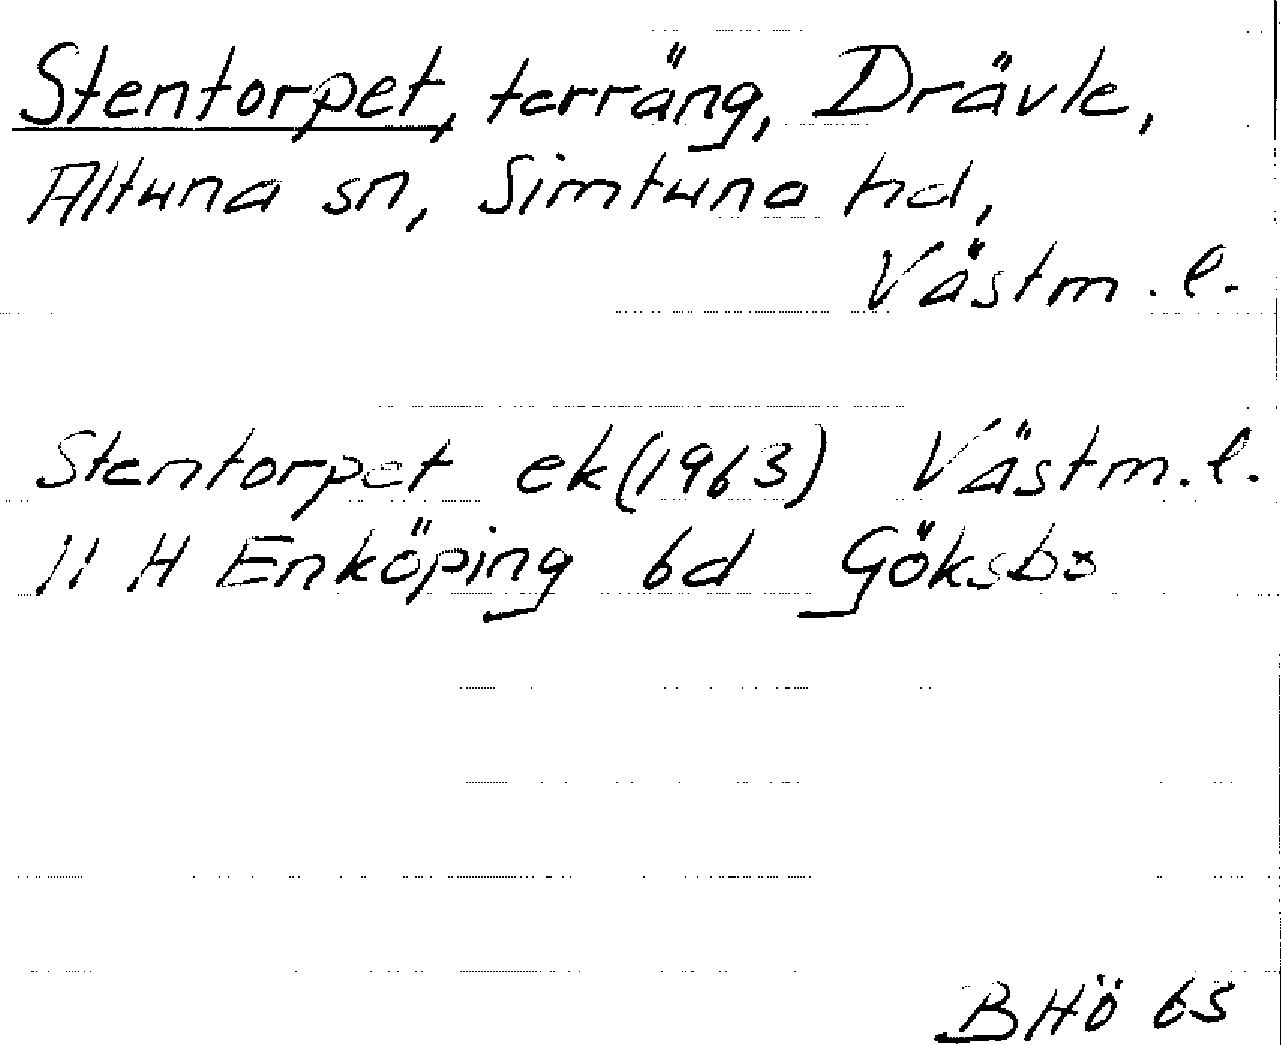 Stentorpet, terräng, Drävle,
Altuna sn, Simtuna hd,
Västm. l.
Stentorpet ek (1963) Västm. l.
11 H Enköping 6d Göksbo
BHÖ 65